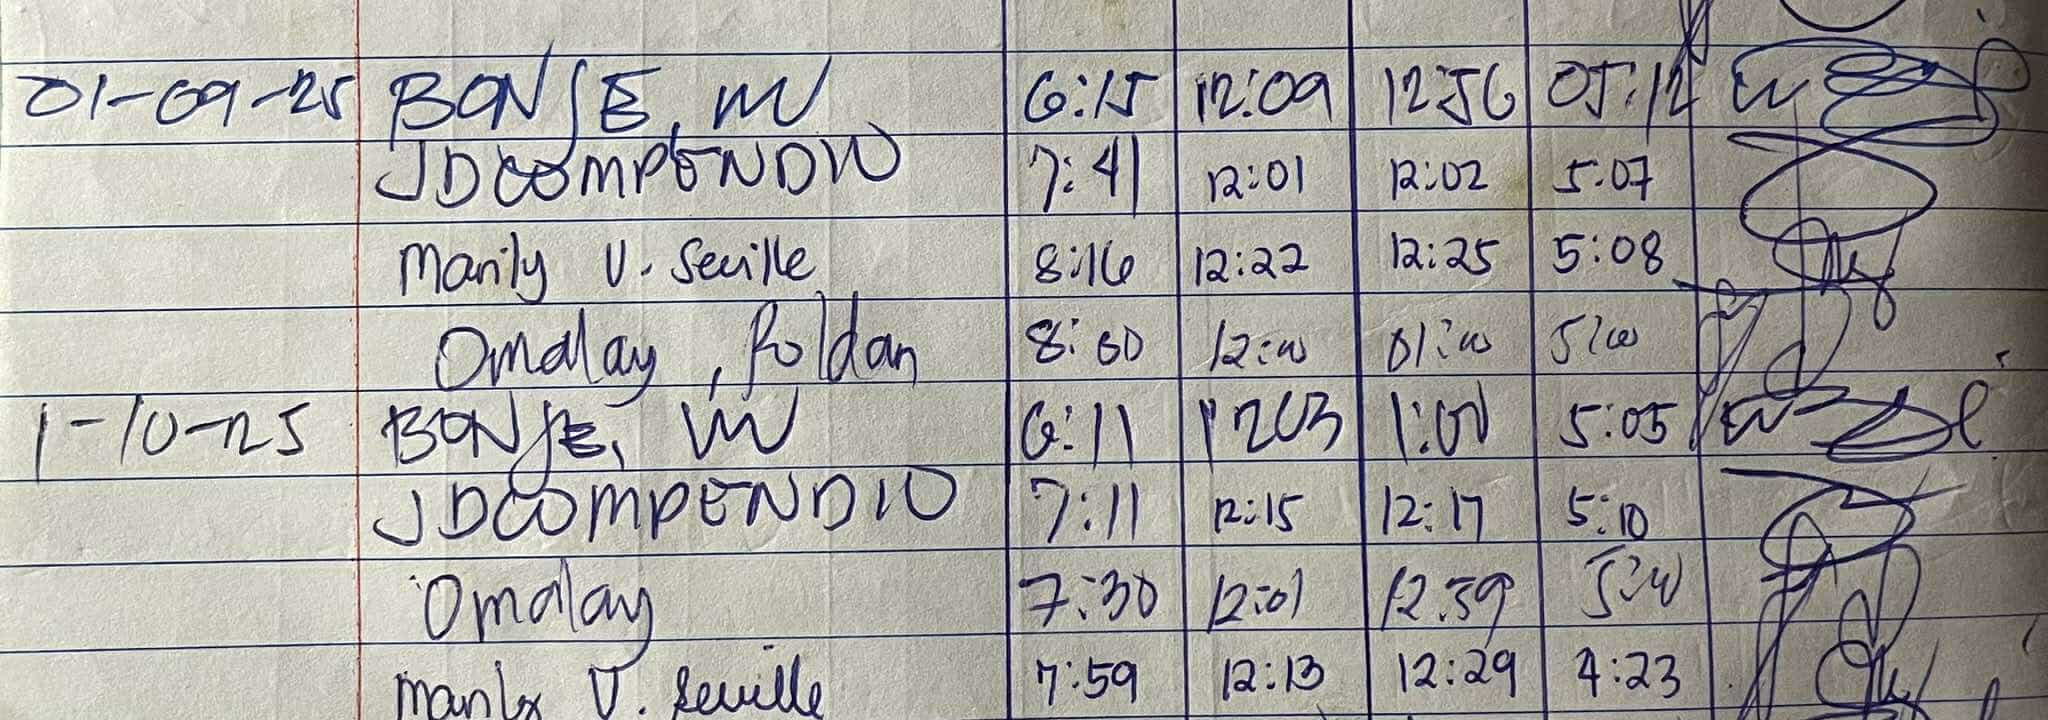 01-09-25 BONSE, M 6:15 12:09 12:56 05:12
JDCOMPENDIO 7:41 12:01 12:02 5:07
Marily V. Seville 8:16 12:22 12:25 5:08
Omalay, Roldan 8:00 12:00 01:00 5:00
1-10-25 BONSE, M 6:11 1203 1:00 5:05
JDCOMPENDIO 7:11 12:15 12:17 5:10
Omalay 7:30 12:01 12:59 5:00
Marily V. Seville 7:59 12:13 12:29 4:23